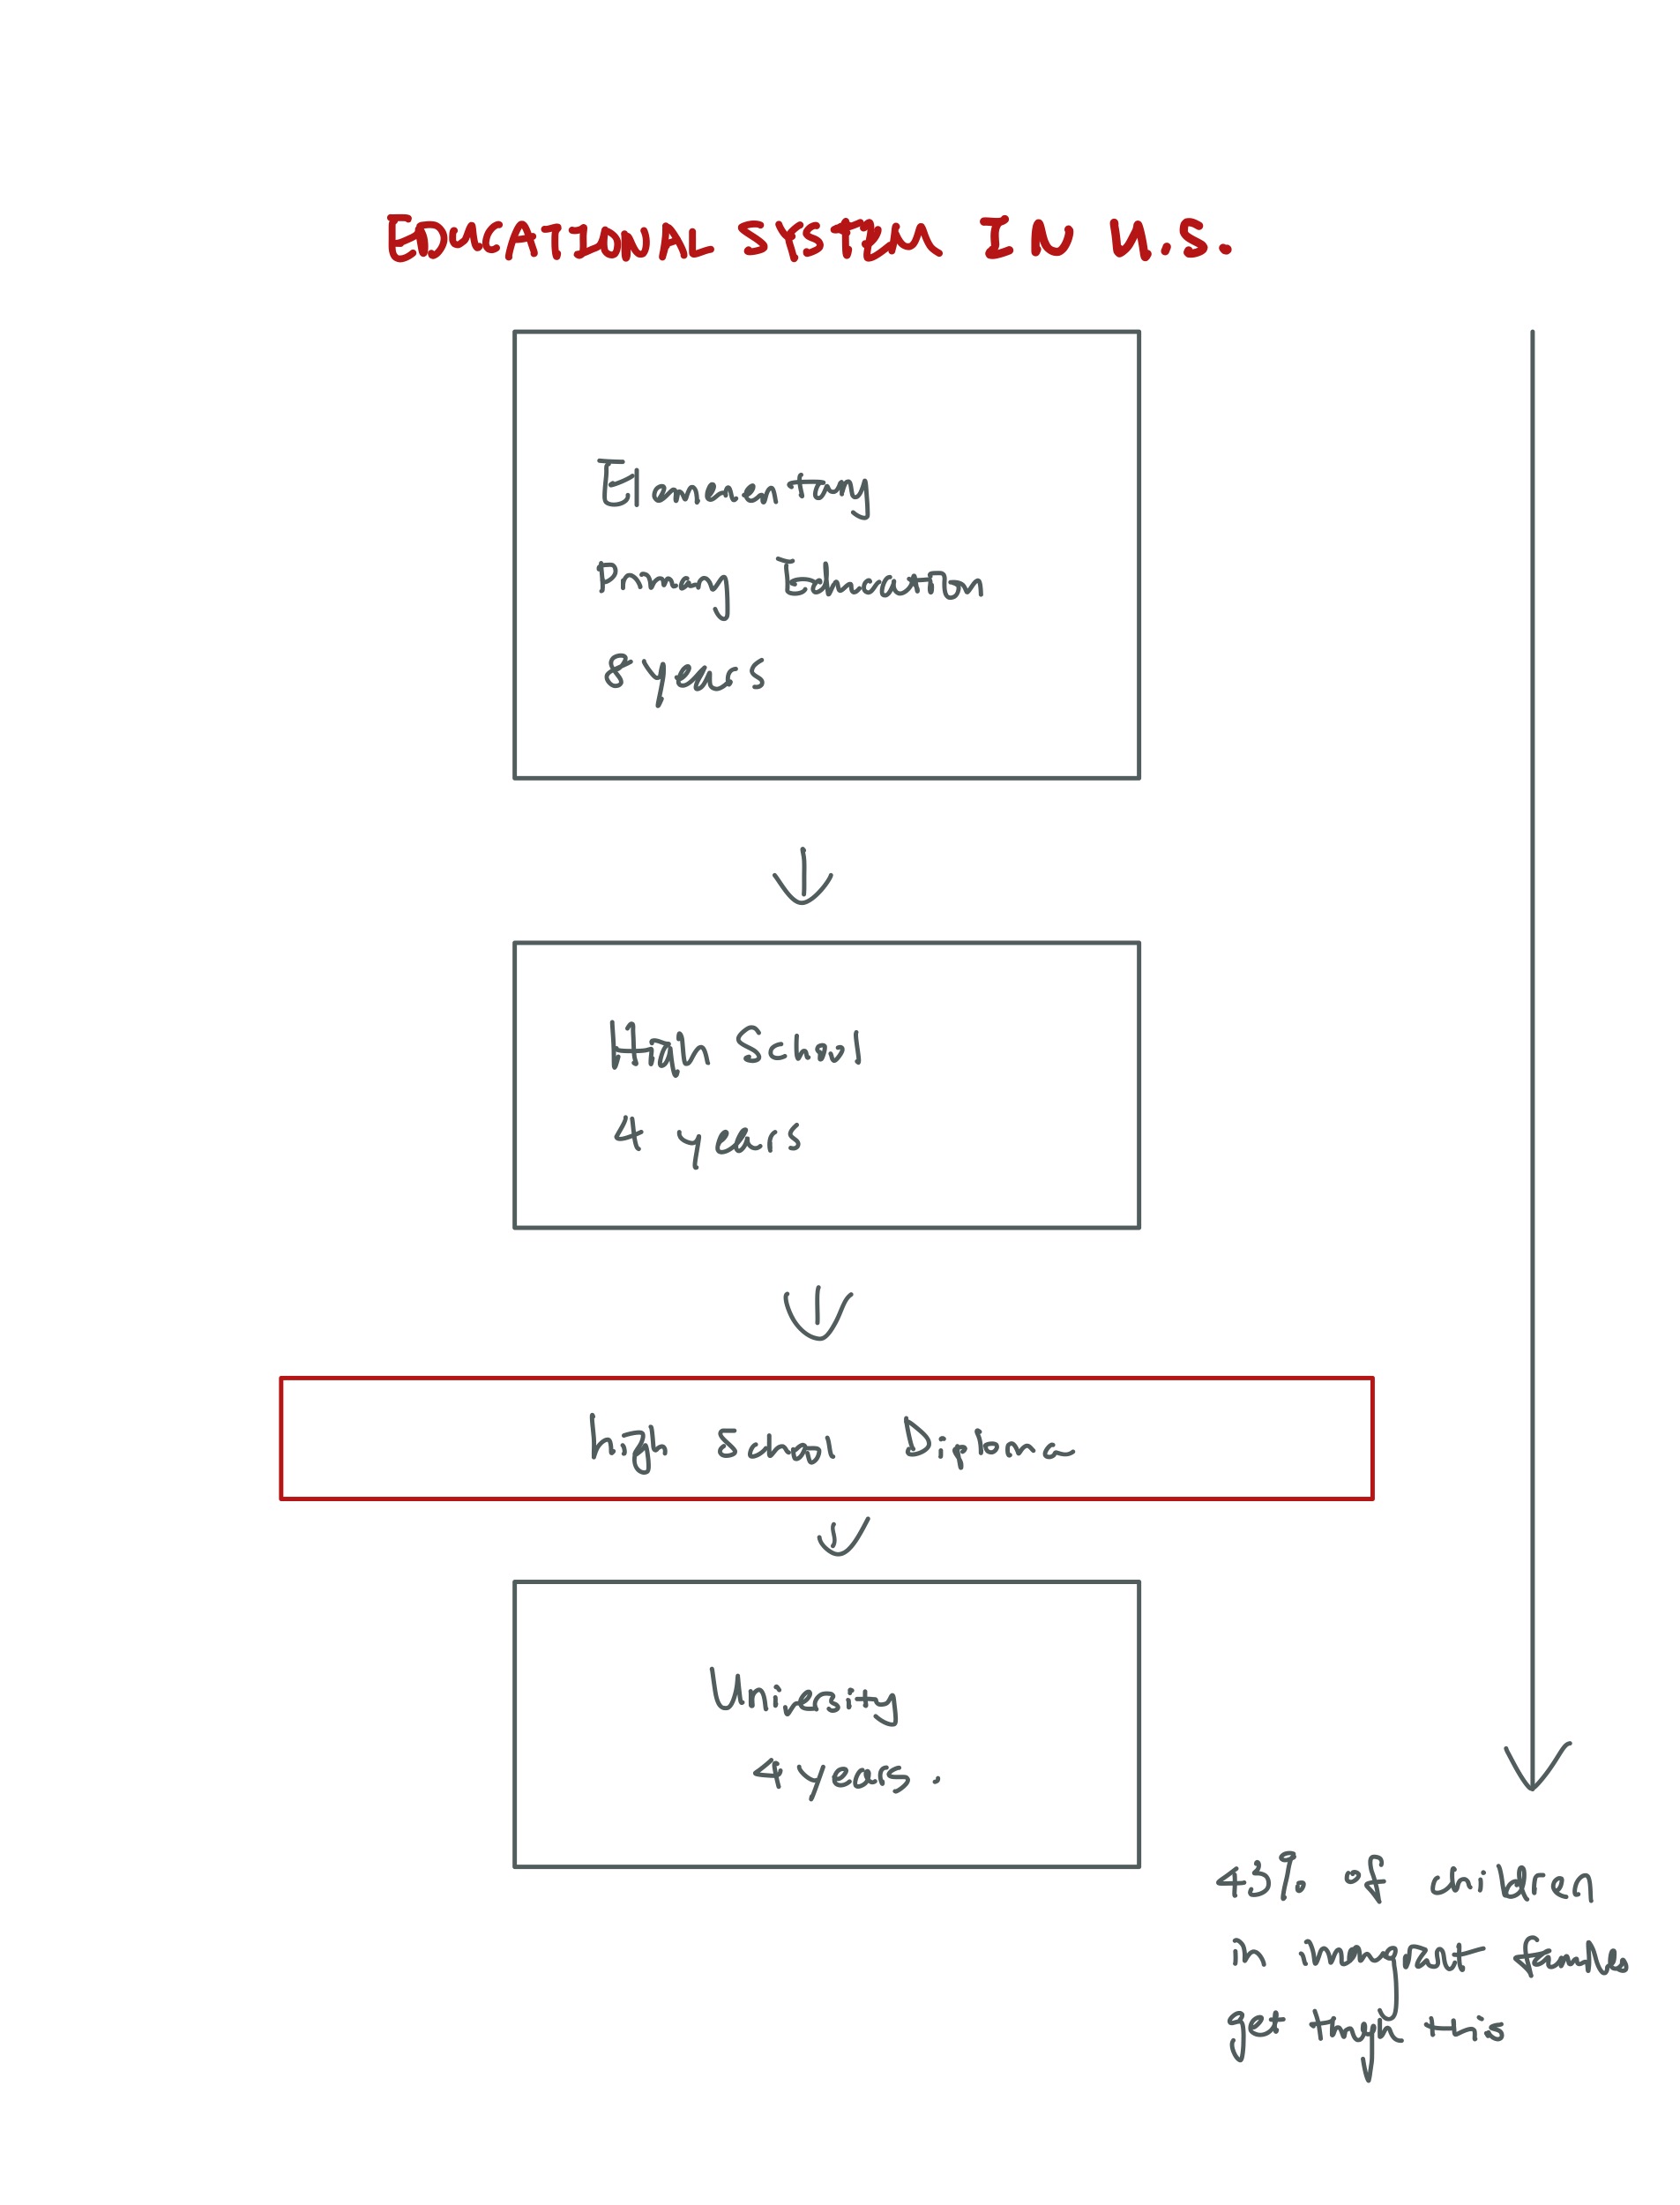 EDUCATIONAL SYSTEM IN U.S.
Elementary
Primary Education
8 years
High School
4 years
high School Diploma
University
4 years.
43% of children
in immigrant families
get through this